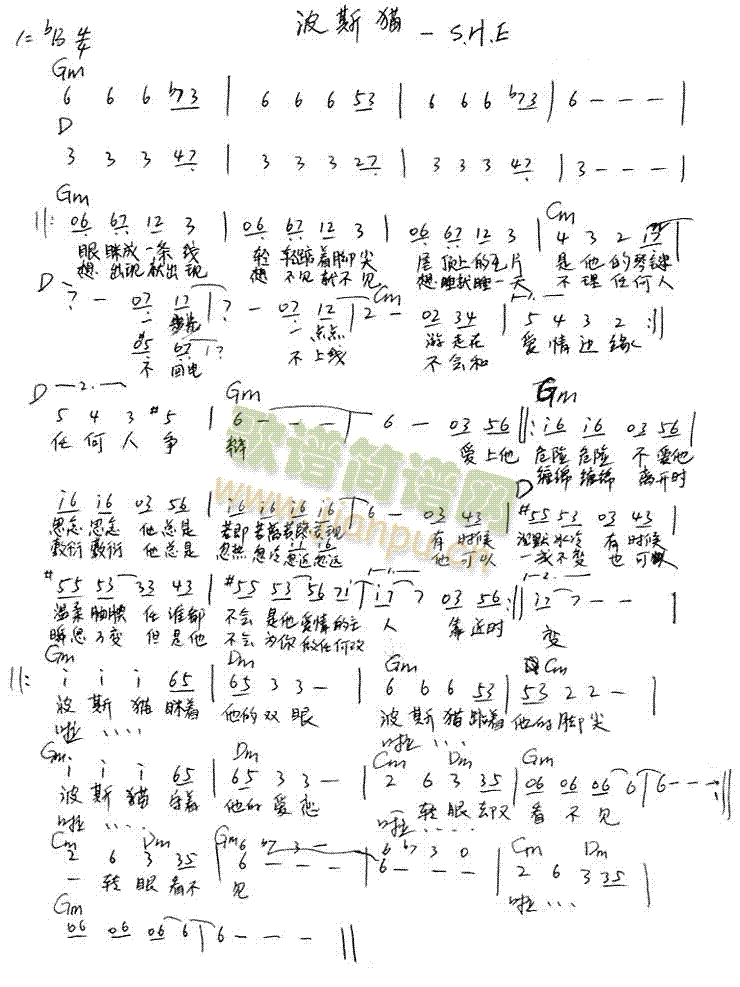 波斯猫 - S.H.E
1=bB 4/4
Gm
6 6 6 b73 | 6 6 6 53 | 6 6 6 b73 | 6 - - - |
D
3 3 3 47 | 3 3 3 27 | 3 3 3 47 | 3 - - - |
Gm Cm
||: 06 67 12 3 | 06 67 12 3 | 06 67 12 3 | 4 3 2 17 |
眼眯成一条线 轻轻踮着脚尖 屋顶上的瓦片 是他的琴键
想出现就出现 想不见就不见 想睡就睡一天 不理任何人
D Cm
7 - 07 17 | 7 - 07 12 | 2 - 02 34 | 5 4 3 2 :||
一步步 一点点 游走在 爱情边缘
不回电 不上线 不会和
D -2.- Gm Gm
5 4 3 #5 | 6 - - - | 6 - 03 56 ||: i6 i6 03 56 |
任何人争 辩 爱上他 危险危险 不爱他
缠绵缠绵 离开时
D
i6 i6 03 56 | i6 i6 i6 i6 | 6 - 03 43 | #55 53 03 43 |
思念思念 他总是 若即若离若隐若现 有时候 沉默冰冷 有时候
敷衍敷衍 他总是 忽热忽冷忽近忽远 他可以 一成不变 也可以
#55 53 33 43 | #55 53 56 71 | i7 7 03 56 :|| i7 7 - - |
温柔腼腆 任谁都 不会是他爱情的主 人 靠近时 变
瞬息万变 但是他 不会为你做任何改
Gm Dm Gm Cm
||: i i i 65 | 65 3 3 - | 6 6 6 53 | 53 2 2 - |
波斯猫眯着 他的双眼 波斯猫踮着 他的脚尖
啦.... 啦....
Gm Dm Cm Dm Gm
i i i 65 | 65 3 3 - | 2 6 3 35 | 06 06 06 6 | 6 - - - :||
波斯猫守着 他的爱恋 一转眼却又 看不见
啦.... 啦....
Cm Dm Gm Cm Dm
2 6 3 35 | 6 - - - | 6 - - - | 2 6 3 35 |
6 b7 3 - 6 b7 3 0
一转眼看不 见 啦....
Gm
06 06 06 6 | 6 - - - ||
歌谱简谱网
www.jianpu.cn